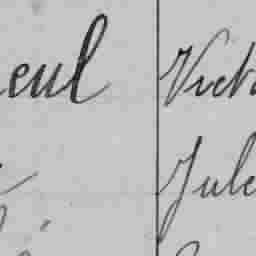 eul Victo
Jule